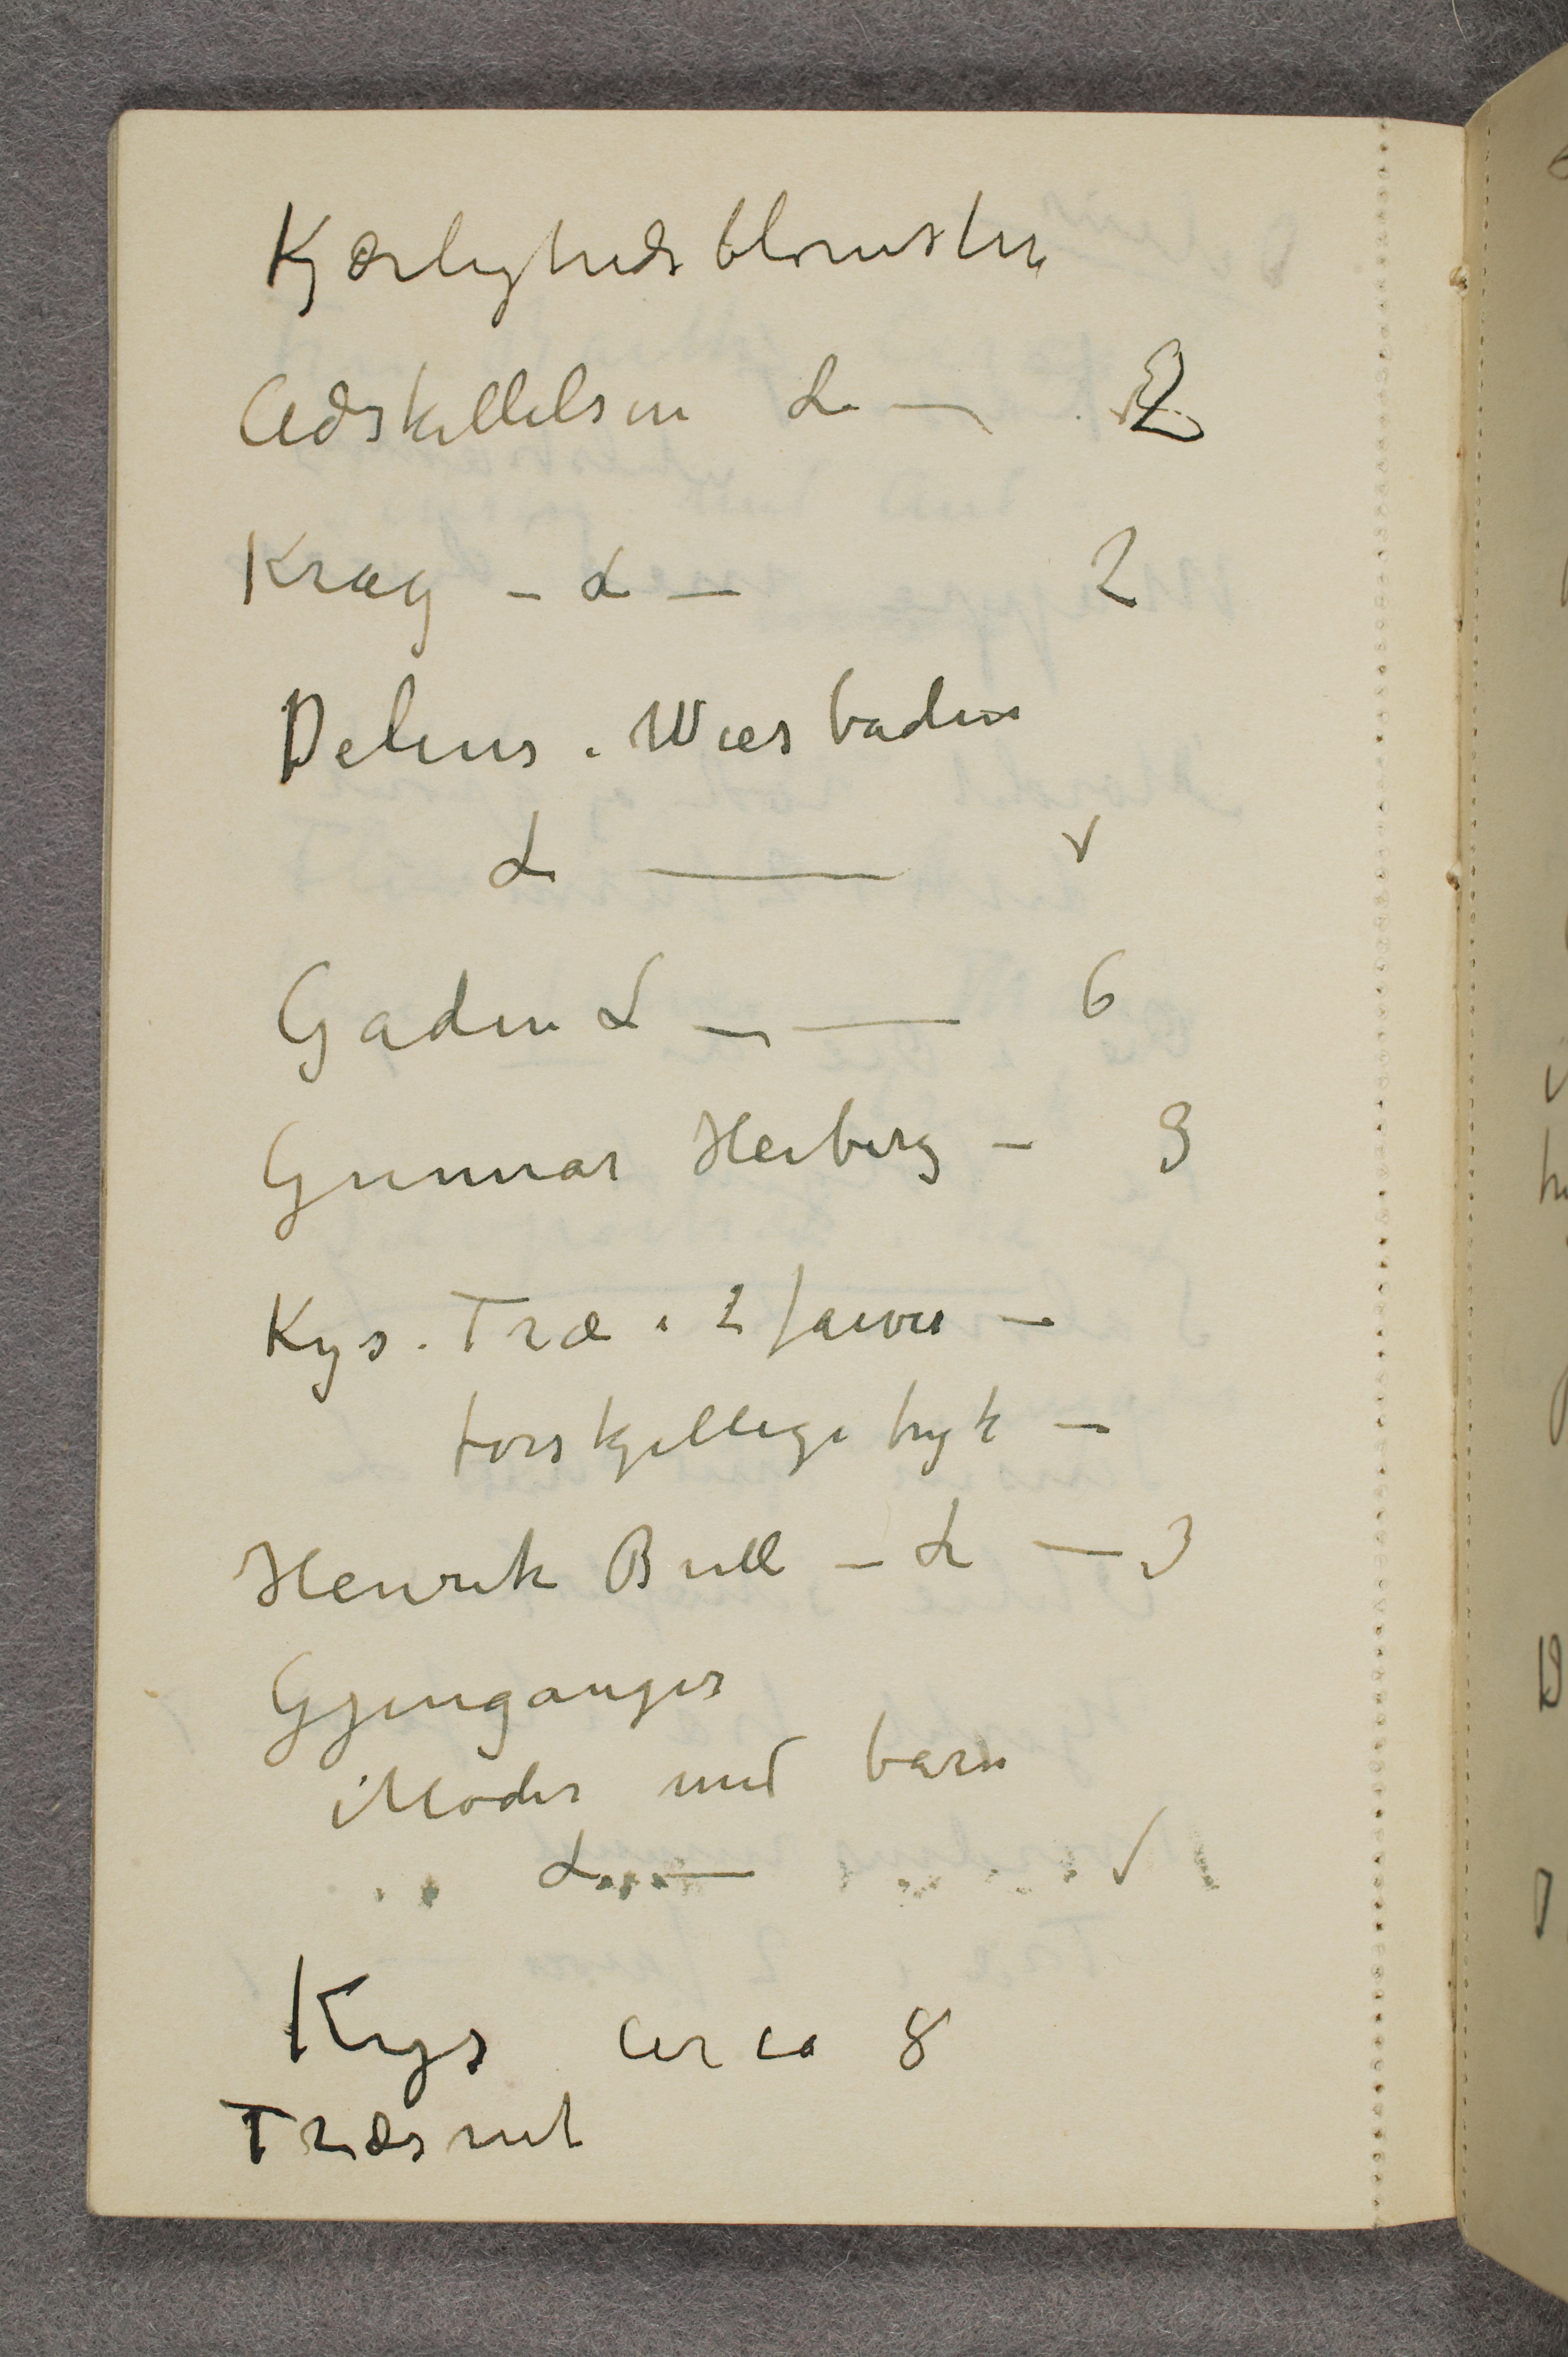 Kjærlighedsblomsten
Adskillelsen L — 2
Krag – L — 2
Delius i Wiesbaden
L — v
Gaden L — — 6
Gunnar Heiberg – 3
Kys. Træ i 2 farver —
forskjellige tryk —
Henrik Bull – L — 3
Gjenganger
Moder med barn
L. — √
Kys circa 8
Træsnit